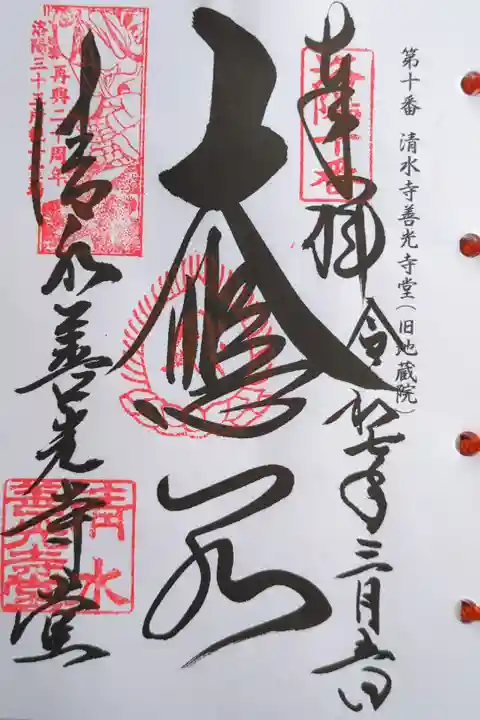 第十番 清水寺善光寺堂(旧地蔵院)
奉拝 令和七年三月吉日
洛陽十番
大悲閣
再興二十周年
洛陽三十三所観音
清水善光寺堂
清水
善光寺堂